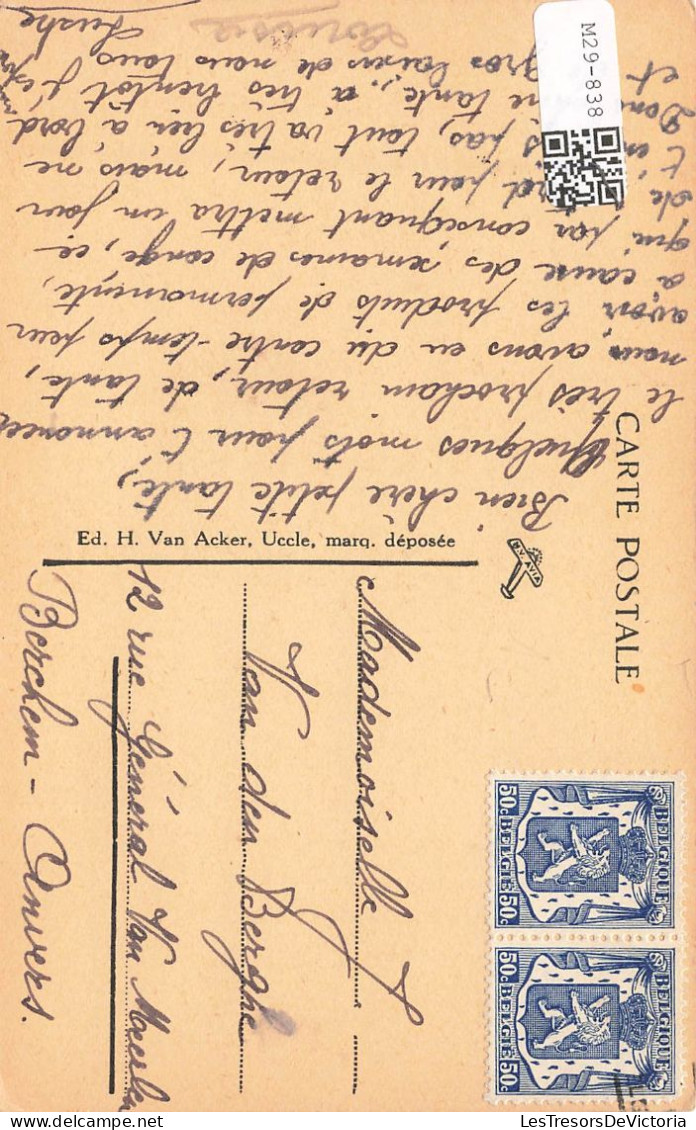 CARTE POSTALE
Bien chère petite tante,
Quelques mots pour t'annoncer
le très prochain retour, de tante,
nous avons eu du contre-temps pour
avoir les produits de permanente,
a cause des semaines de congé, ce
qui par conséquant mettra un jour
de pour le retour, mais ne
t'in pas, tout va très bien à bord
Donc tante, à très bientôt
et gros baisers de nous tous
Louisa
Ed. H. Van Acker, Uccle, marq. déposée
N.V. AVIA
Mademoiselle J.
Van den Berghe
12 rue Général Van Meerlen
Berchem - Anvers.
50c BELGIË 50c
BELGIQUE
50c BELGIË 50c
BELGIQUE
M29-838
LesTresorsDeVictoria